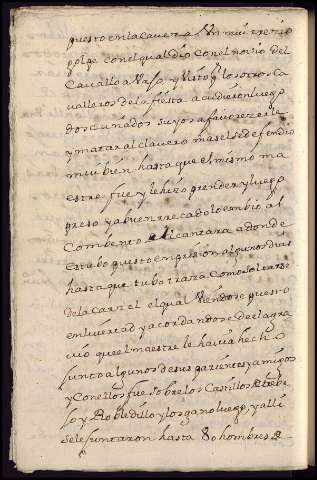 puesto en la cavera Un mui rrezio
golpe con el qual dio con el novio del
Cavallo a vajo y Visto por los otros Ca
valleros de la fiesta acudieron luego
dos cuñados suyos a favorezerle
y matar al clavero mas el se defendio
mui bien hasta que el mismo ma
estre fue y le hizo prender y luego
preso y a buen rrecado lo embio al
Combento de Alcantara adonde
estubo puesto en prision algunos dias
hasta que tubo traza como soltarse
de la carzel el qual Viendose puesto
en livertad y acordandose del agra
vio que el maestre le havia hecho
junto algunos de sus parientes y amigos
y Con ellos fue sobre los Castillos de
so y Robledillo y los gano luego, y alli
se le juntaron hasta 80 hombres de